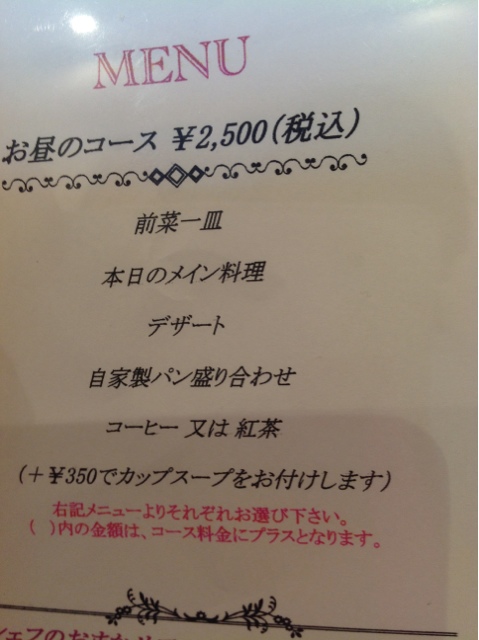 MENU
お昼のコース ￥2,500(税込)
前菜一皿
本日のメイン料理
デザート
自家製パン盛り合わせ
コーヒー 又は 紅茶
(＋￥350でカップスープをお付けします)
右記メニューよりそれぞれお選び下さい。
(　)内の金額は、コース料金にプラスとなります。
シェフのおすすめ